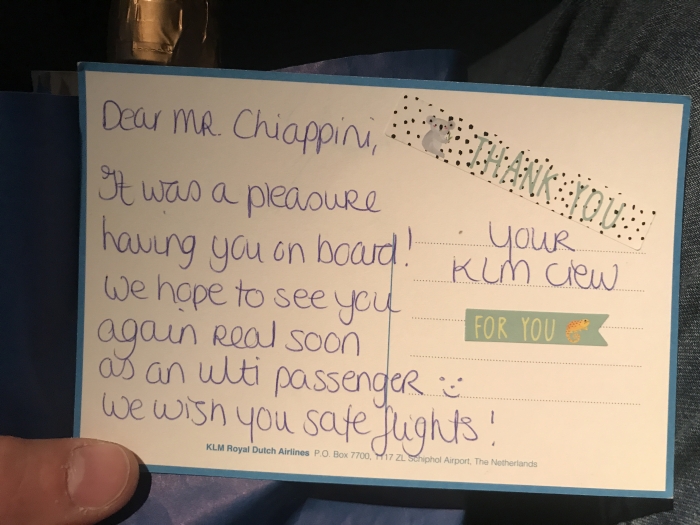 Dear MR. Chiappini,
It was a pleasure
having you on board!
we hope to see you
again real soon
as an ulti passenger :-)
we wish you safe flights!
THANK YOU
your
KLM crew
FOR YOU
KLM Royal Dutch Airlines P.O. Box 7700, 1117 ZL Schiphol Airport, The Netherlands